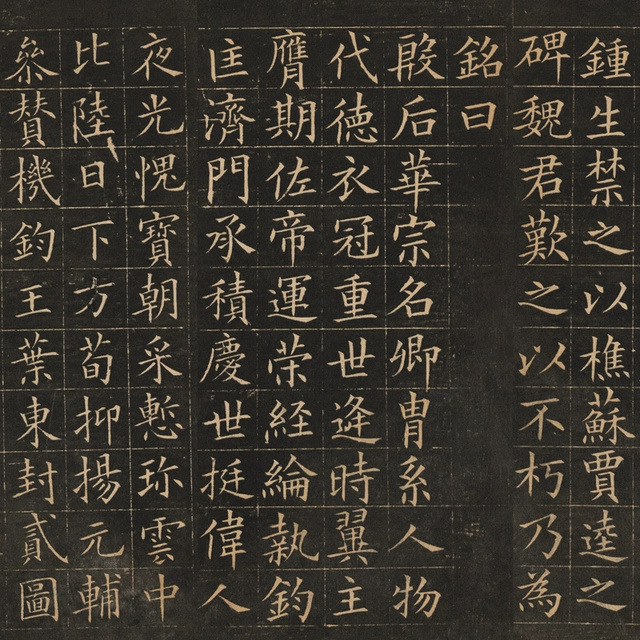 鍾生禁之以樵蘇賈逵之
碑魏君歎之以不朽乃為
銘曰
殷后華宗名卿胄系人物
代德衣冠重世逢時翼主
膺期佐帝運荣経綸執鈞
匡濟門承積慶世挺偉人
夜光愧寶朝采慙珍雲中
比陸日下方荀抑揚元輔
叅賛機鈞王葉東封貳圖